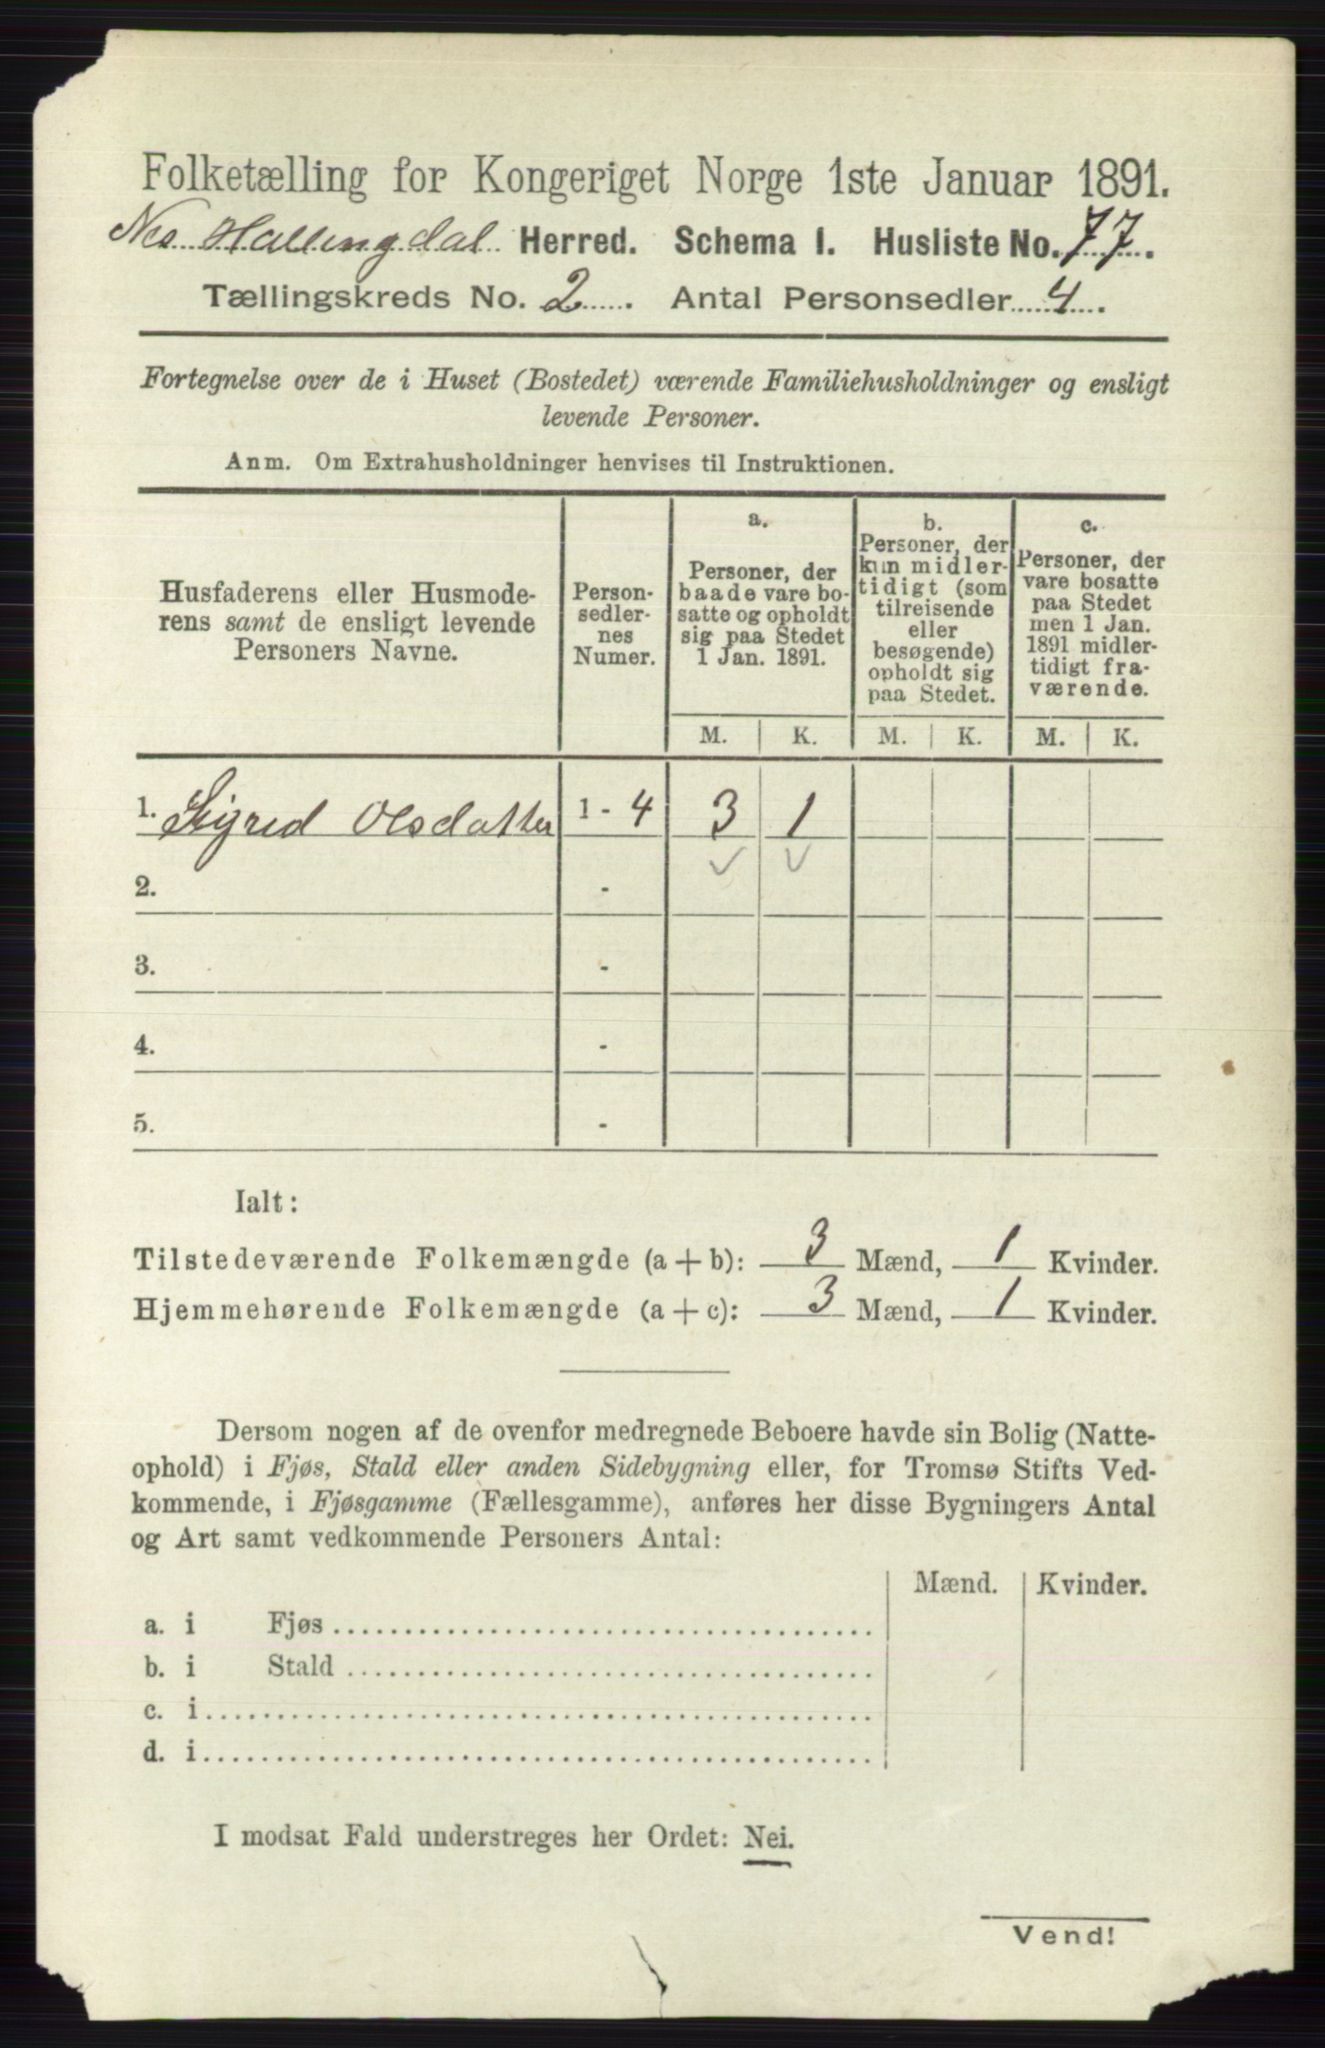 Folketælling for Kongeriget Norge 1ste Januar 1891.
Nes Hallingdal Herred. Schema I. Husliste No. 77.
Tællingskreds No. 2. Antal Personsedler 4.
Fortegnelse over de i Huset (Bostedet) værende Familiehusholdninger og ensligt
levende Personer.
Anm. Om Extrahusholdninger henvises til Instruktionen.
Husfaderens eller Husmode-
rens samt de ensligt levende
Personers Navne.
Person-
sedler-
nes
Numer.
a.
Personer, der
baade vare bo-
satte og opholdt
sig paa Stedet
1 Jan. 1891.
b.
Personer, der
kun midler-
tidigt (som
tilreisende
eller
besøgende)
opholdt sig
paa Stedet.
c.
Personer, der
vare bosatte
paa Stedet
men 1 Jan.
1891 midler-
tidigt fra-
værende.
M. K. M. K. M. K.
1. Sigrid Olsdatter 1 - 4 3 1
2. -
3. -
4. -
5. -
Ialt:
Tilstedeværende Folkemængde (a + b): 3 Mænd, 1 Kvinder.
Hjemmehørende Folkemængde (a + c): 3 Mænd, 1 Kvinder.
Dersom nogen af de ovenfor medregnede Beboere havde sin Bolig (Natte-
ophold) i Fjøs, Stald eller anden Sidebygning eller, for Tromsø Stifts Ved-
kommende, i Fjøsgamme (Fællesgamme), anføres her disse Bygningers Antal
og Art samt vedkommende Personers Antal:
Mænd. Kvinder.
a. i Fjøs
b. i Stald
c. i
d. i
I modsat Fald understreges her Ordet: Nei.
Vend!